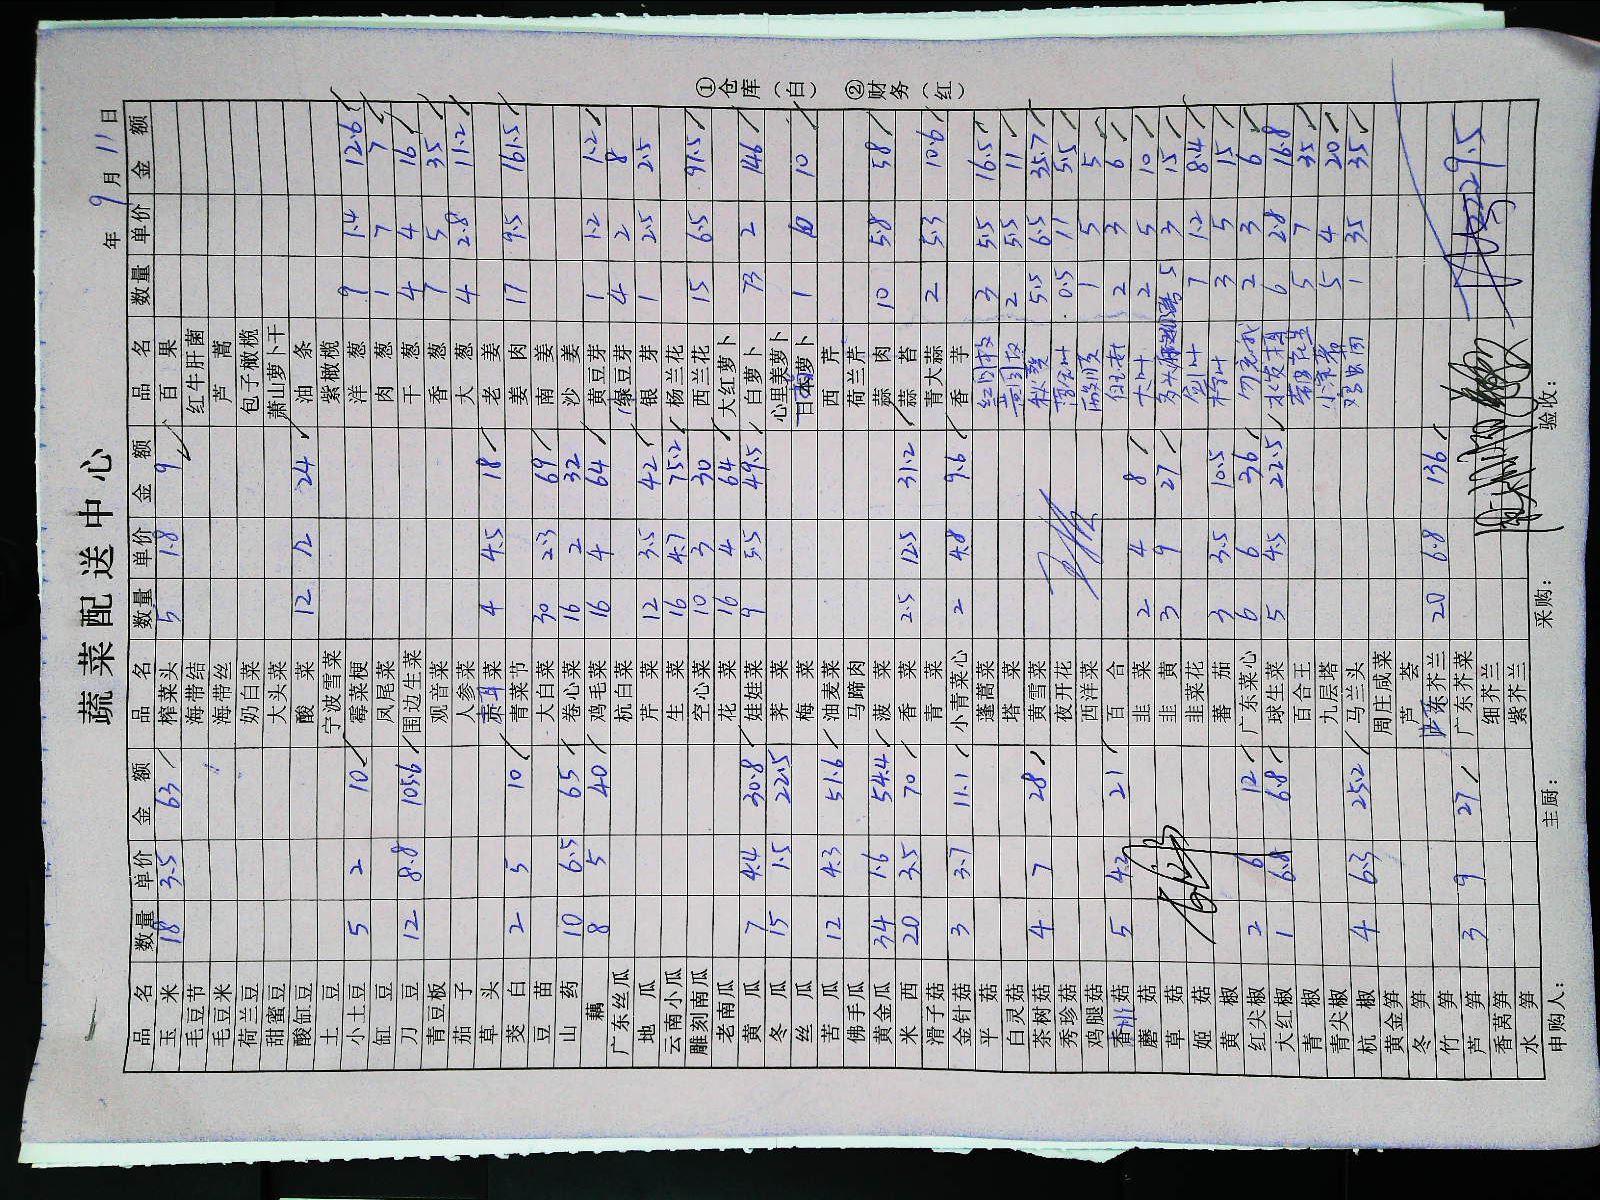 蔬菜配送中心
年 9月11日
品名 数量 单价 金额 品名 数量 单价 金额 品名 数量 单价 金额
玉米 18 3.5 63 榨菜头 5 1.8 9 百果
毛豆节 海带结 红牛肝菌
毛豆米 海带丝 芦蒿
荷兰豆 奶白菜 包子橄榄
甜蜜豆 大头菜 萧山萝卜干
酸缸豆 酸菜 12 2 24 油条
土豆 宁波雪菜 紫橄榄
小土豆 5 2 10 霉菜梗 洋葱 9 1.4 12.6
缸豆 凤尾菜 肉葱 1 7 7
刀豆 12 8.8 105.6 围边生菜 干葱 4 4 16
青豆板 观音菜 香葱 7 5 35
茄子 人参菜 大葱 4 2.8 11.2
草头 菜 4 4.5 18 老姜
茭白 2 5 10 青菜节 姜肉 17 9.5 161.5
豆苗 大白菜 30 2.3 69 南姜
山药 10 6.5 65 卷心菜 16 2 32 沙姜
藕 8 5 40 鸡毛菜 16 4 64 黄豆芽 1 1.2 1.2
广东丝瓜 杭白菜 绿豆芽 4 2 8
地瓜 芹菜 12 3.5 42 银芽 1 2.5 2.5
云南小瓜 生菜 16 4.7 75.2 杨兰花
雕刻南瓜 空心菜 10 3 30 西兰花 15 6.5 97.5
老南瓜 花菜 16 4 64 大红萝卜
黄瓜 7 4.4 30.8 娃娃菜 9 5.5 49.5 白萝卜 73 2 146
冬瓜 15 1.5 22.5 荠菜 心里美萝卜
丝瓜 梅菜 日本萝卜 1 10 10
苦瓜 12 4.3 51.6 油麦菜 西芹
佛手瓜 马蹄肉 荷兰芹
黄金瓜 34 1.6 54.4 菠菜 蒜肉 10 5.8 58
米西 20 3.5 70 香菜 2.5 12.5 31.2 蒜苔
滑子菇 青菜 青大蒜 2 5.3 10.6
金针菇 3 3.7 11.1 小青菜心 2 4.8 9.6 香芋
平菇 蓬蒿菜 3 5.5 16.5
白灵菇 塔菜 2 5.5 11
茶树菇 4 7 28 黄雪菜 秋葵 5.5 6.5 35.7
秀珍菇 夜开花 薄荷叶 0.5 11 5.5
鸡腿菇 西洋菜 1 5 5
香菇 5 4.2 21 百合 2 3 6
蘑菇 韭菜 2 4 8 大叶 2 5 10
草菇 韭黄 3 9 27 5 3 15
姬菇 韭菜花 7 1.2 8.4
黄椒 蕃茄 3 3.5 10.5 3 5 15
红尖椒 2 6 12 广东菜心 6 6 36 勿忘我 2 3 6
大红椒 1 6.8 6.8 球生菜 5 4.5 22.5 6 2.8 16.8
青椒 百合王 5 7 35
青尖椒 九层塔 5 4 20
杭椒 4 6.3 25.2 马兰头 1 35 35
黄金笋 周庄咸菜
冬笋 芦荟
竹笋 东芥兰 20 6.8 136
芦笋 3 9 27 广东芥菜 2229.5
香莴笋 细芥兰
水笋 紫芥兰
申购人: 主厨: 采购: 验收:
①仓库（白） ②财务（红）